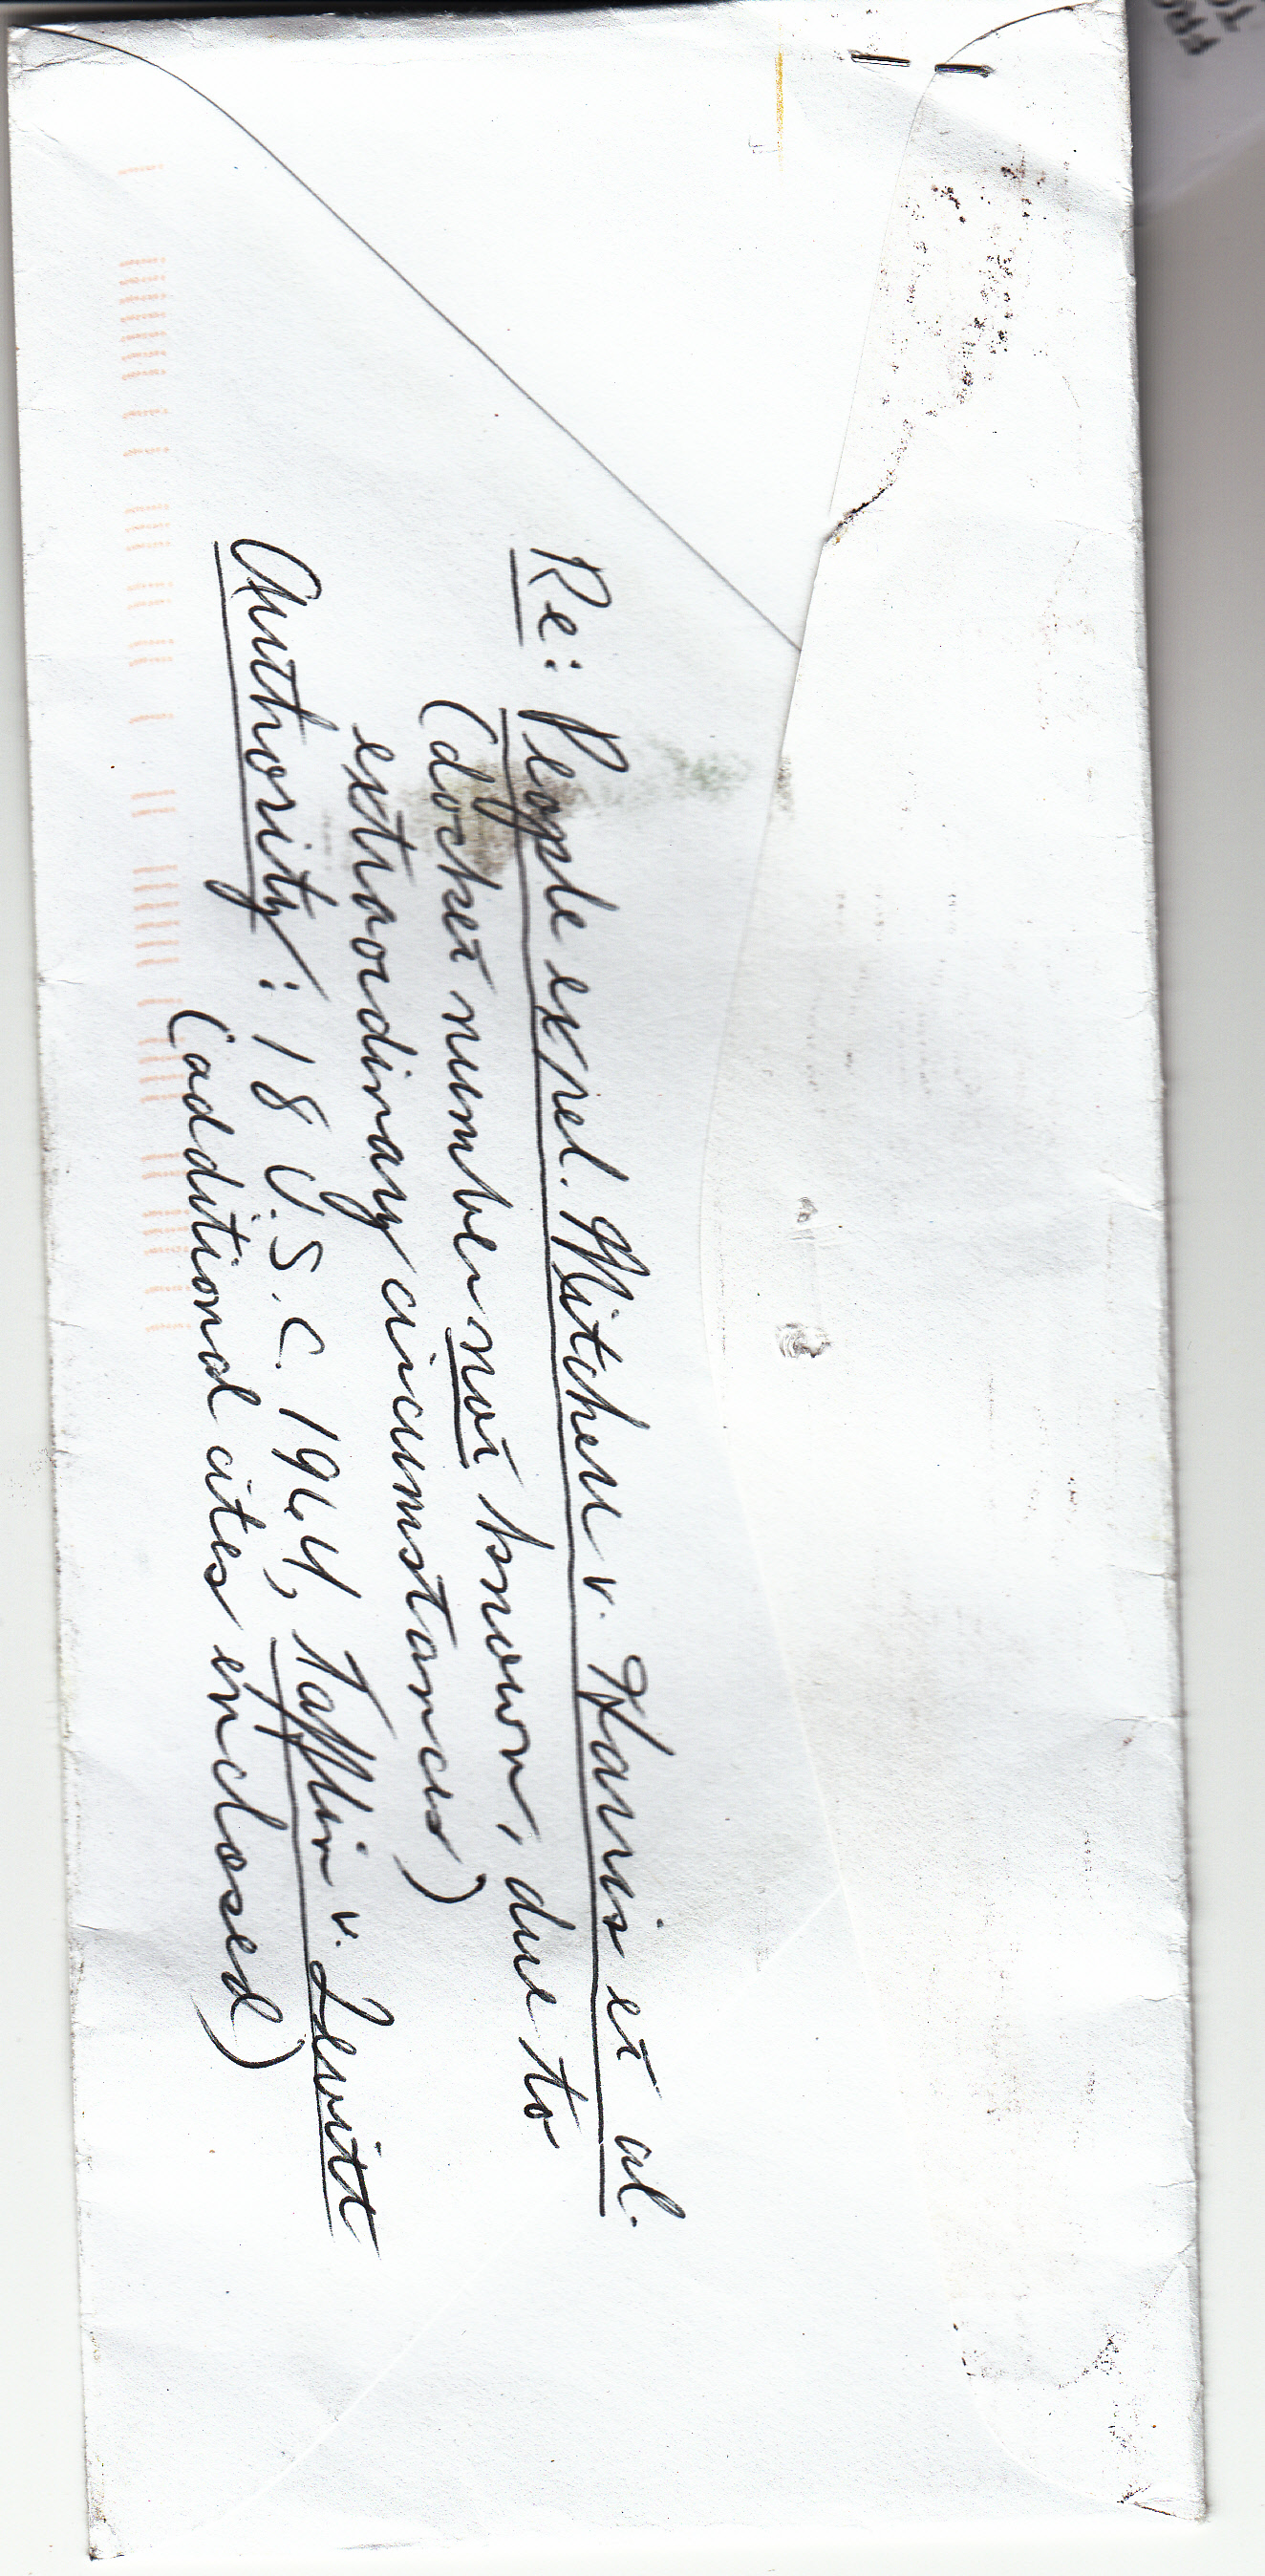 Re: People ex rel. Mitchell v. Harris et al.
(docket number not known, due to
extraordinary circumstances)
Authority: 18 U.S.C. 1964, Tafflin v. Levitt
(additional cites enclosed)